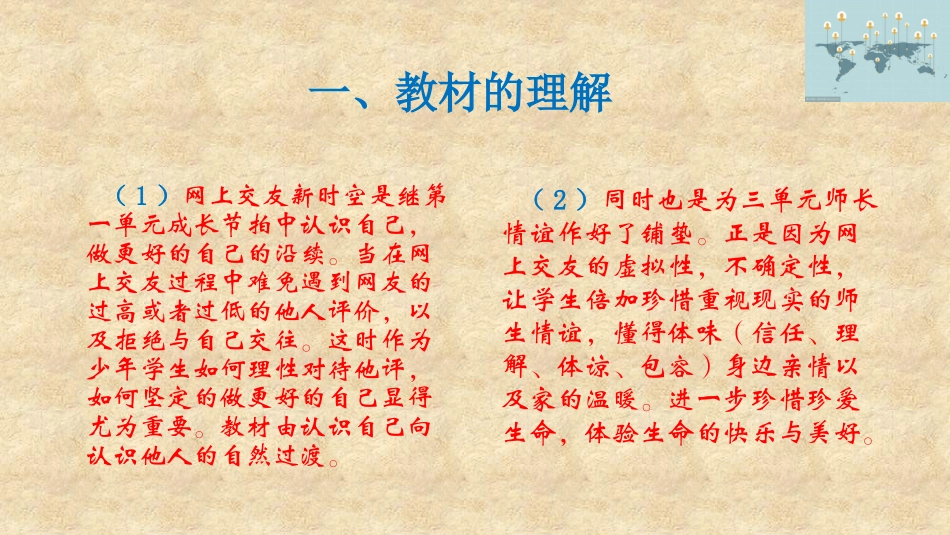 一、教材的理解
（1）网上交友新时空是继第
一单元成长节拍中认识自己，
做更好的自己的沿续。当在网
上交友过程中难免遇到网友的
过高或者过低的他人评价，以
及拒绝与自己交往。这时作为
少年学生如何理性对待他评，
如何坚定的做更好的自己显得
尤为重要。教材由认识自己向
认识他人的自然过渡。
（2）同时也是为三单元师长
情谊作好了铺垫。正是因为网
上交友的虚拟性，不确定性，
让学生倍加珍惜重视现实的师
生情谊，懂得体味（信任、理
解、体谅、包容）身边亲情以
及家的温暖。进一步珍惜珍爱
生命，体验生命的快乐与美好。